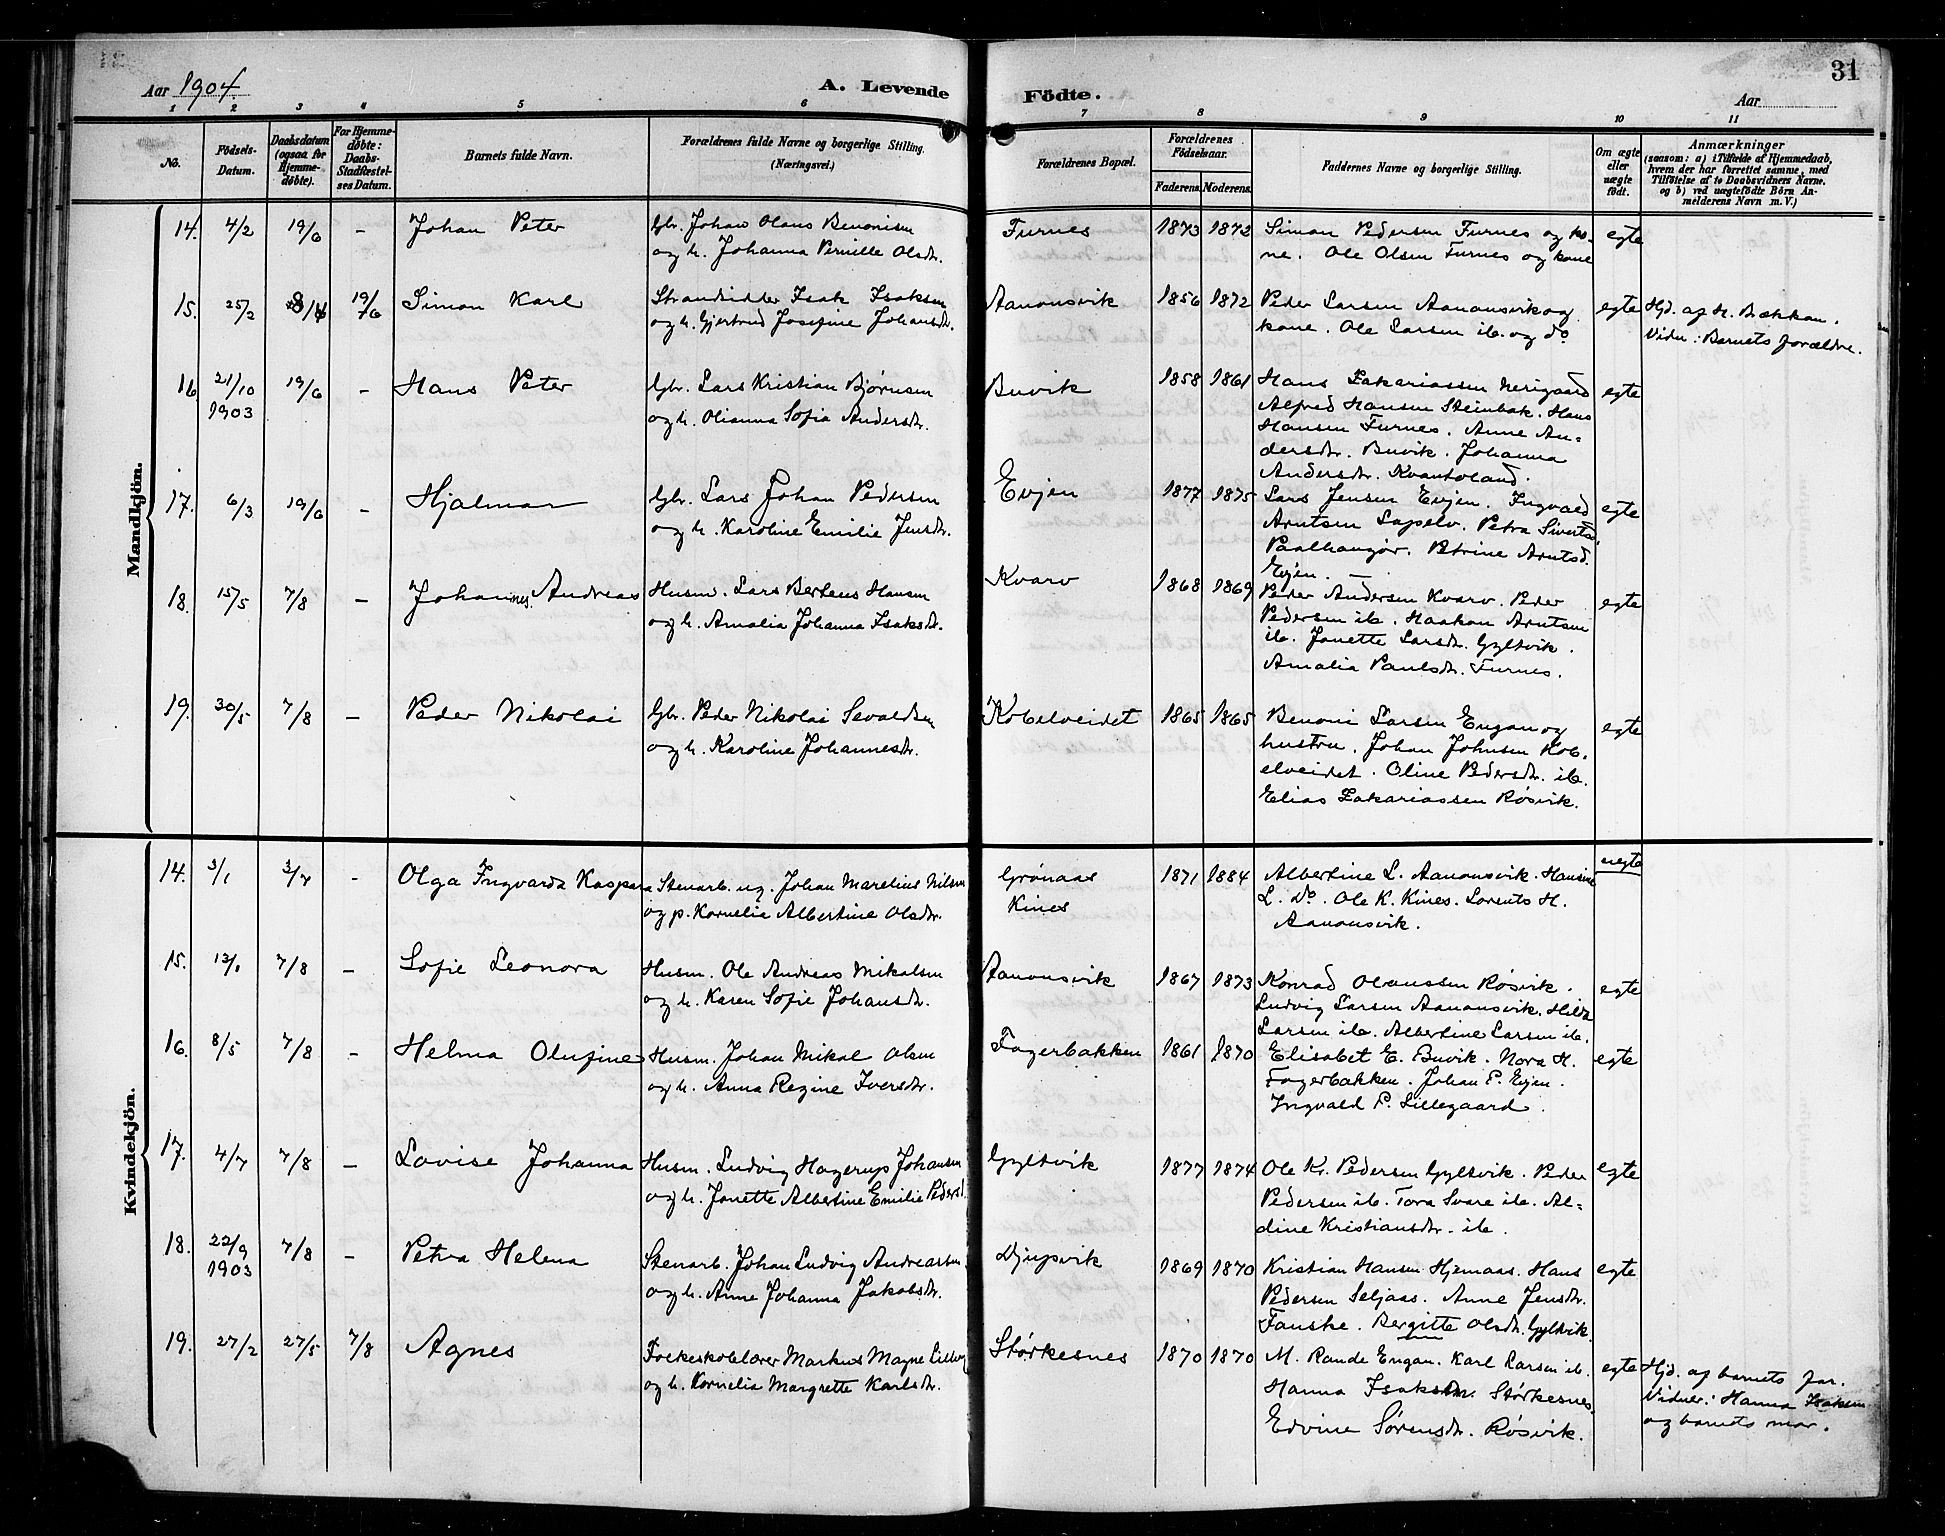 Aar 1904
A. Levende
Födte.
31
Aar
1 2 3 4 5 6 7 8 9 10 11
No.
Födsels-Datum.
Daabsdatum (ogsaa for Hjemme-døbte).
For Hjemme-døbte: Daabs-Stadfæstel-ses Datum.
Barnets fulde Navn.
Forældrenes fulde Navne og borgerlige Stilling. (Næringsvei.)
Forældrenes Bopæl.
Forældrenes Födselsaar.
Faderens. Moderens.
Faddernes Navne og borgerlige Stilling.
Om ægte eller uægte födt.
Anmærkninger
(saasom: a) i Tilfælde af Hjemmedaab,
hvem der har forrettet samme, med
Tilföielse af to Daabsvidners Navne.
og b) ved uægtefödte Börn An-
melderens Navn m. V.)
Mandkjön.
14. 4/2 19/6 – Johan Peter
Gbr. Johan Olaus Benonisen
og h. Johanna Pernille Olsdr.
Furnes 1873 1872
Simon Pedersen Furnes og ko-
ne. Ole Olsen Furnes og kone
egte
15. 25/2 8/4 19/6 Simon Karl
Strandsidder Isak Isaksen
og h. Gjertrud Josefine Johansdr.
Aanonsvik 1856 1872
Peder Larsen Aanonsvik og
kone. Ole Larsen ib. og do
egte
Hjd. af H. Bækkan.
Vidn: Barnets forældre.
16 21/10 1903 19/6 – Hans Peter
Gbr. Lars Kristian Bjørnsen
og h. Olianna Sofia Andersdr.
Buvik 1858 1861
Hans Zakariassen Nerigaard
Alfred Hansen Steinbak. Hans
Hansen Furnes. Anne An-
dersdr. Buvik. Johanna
Andersdr. Kvantoland.
egte
17. 6/3 19/6 – Hjalmar
Gbr. Lars Johan Pedersen
og h. Karoline Emilie Jensdr.
Evjen 1877 1875
Lars Jensen Evjen. Ingvald
Arntsen Lapelv. Petra Sivertsd.
Paalhaugør. Petrine Arntsd.
Evjen.
egte
18. 15/5 7/8 – Johannes Andreas
Husm. Lars Berteus Hansen
og h. Amalia Johanna Isaksdr.
Kvarv 1868 1869
Peder Andersen Kvarv. Peder
Pedersen ib. Haakon Arntsen
ib. Jonette Larsdr. Gyltvik.
Amalia Paulsdr. Furnes.
egte
19. 30/5 7/8 – Peder Nikolai
Gbr. Peder Nikolai Sevaldsen
og h. Karoline Johannesdr.
Kobelveidet 1865 1865
Benoni Larsen Engan og
hustru. Johan Johnsen Kob-
elveidet. Oline Pedersdr. ib.
Elias Zakariassen Røsvik.
egte
Kvindekjön.
14. 3/1 3/7 - Olga Ingvarda Kaspara
Stenarb. ug. Johan Marelius Nilsen
og p. Kornelia Albertine Olsdr.
Grønaas
Kines
1871 1884
Albertine L. Aanonsvik. Hansine
L. do. Ole K. Kines. Lorents H.
Aanonsvik.
uegte
15. 13/1 7/8 – Sofie Leonora
Husm. Ole Andreas Mikalsen
og h. Karen Sofie Johansdr.
Aanonsvik 1867 1873
Konrad Olaussen Røsvik.
Ludvig Larsen Aanonsvik. Hilda
Larsen ib. Albertine Larsen ib.
egte
16. 8/5 7/8 – Helma Olufine
Husm. Johan Mikal Olsen
og h. Anna Regine Iversdr.
Fagerbakken 1861 1870
Elisabet E. Buvik. Nora H.
Fagerbakken. Johan P. Evjen.
Ingvald P. Lillegaard.
egte
17. 4/7 7/8 – Lovise Johanna
Husm. Ludvig Hagerup Johansen
og h. Jonette Albertine Emilie Pedersd.
Gyltvik 1877 1874
Ole Kr. Pedersen Gyltvik. Peder
Pedersen ib. Tora Svare ib. Al-
dine Kristiansdr. ib.
egte
18. 22/9 1903 7/8 – Petra Helena
Stenarb. Johan Ludvig Andreassen
og h. Anne Johanna Jakobsdr.
Djupvik 1869 1870
Kristian Hansen Hjemaas. Hans
Pedersen Seljaas. Anne Jensdr.
Fauske. Bergitte Olsdr. Gyltvik.
egte
19. 27/2 27/5 7/8 Agnes
Folkeskolelærer Markus Magne
og h. Kornelia Margrette Karlsdr.
Størkesnes 1870 1870
M. Rande Engan. Karl Larsen ib.
Hanna Isaksdr. Størkesnes.
Edvine Sørensdr. Røsvik.
egte
Hjd. af barnets far.
Vidner: Hanna Isaksen
og barnets mor.